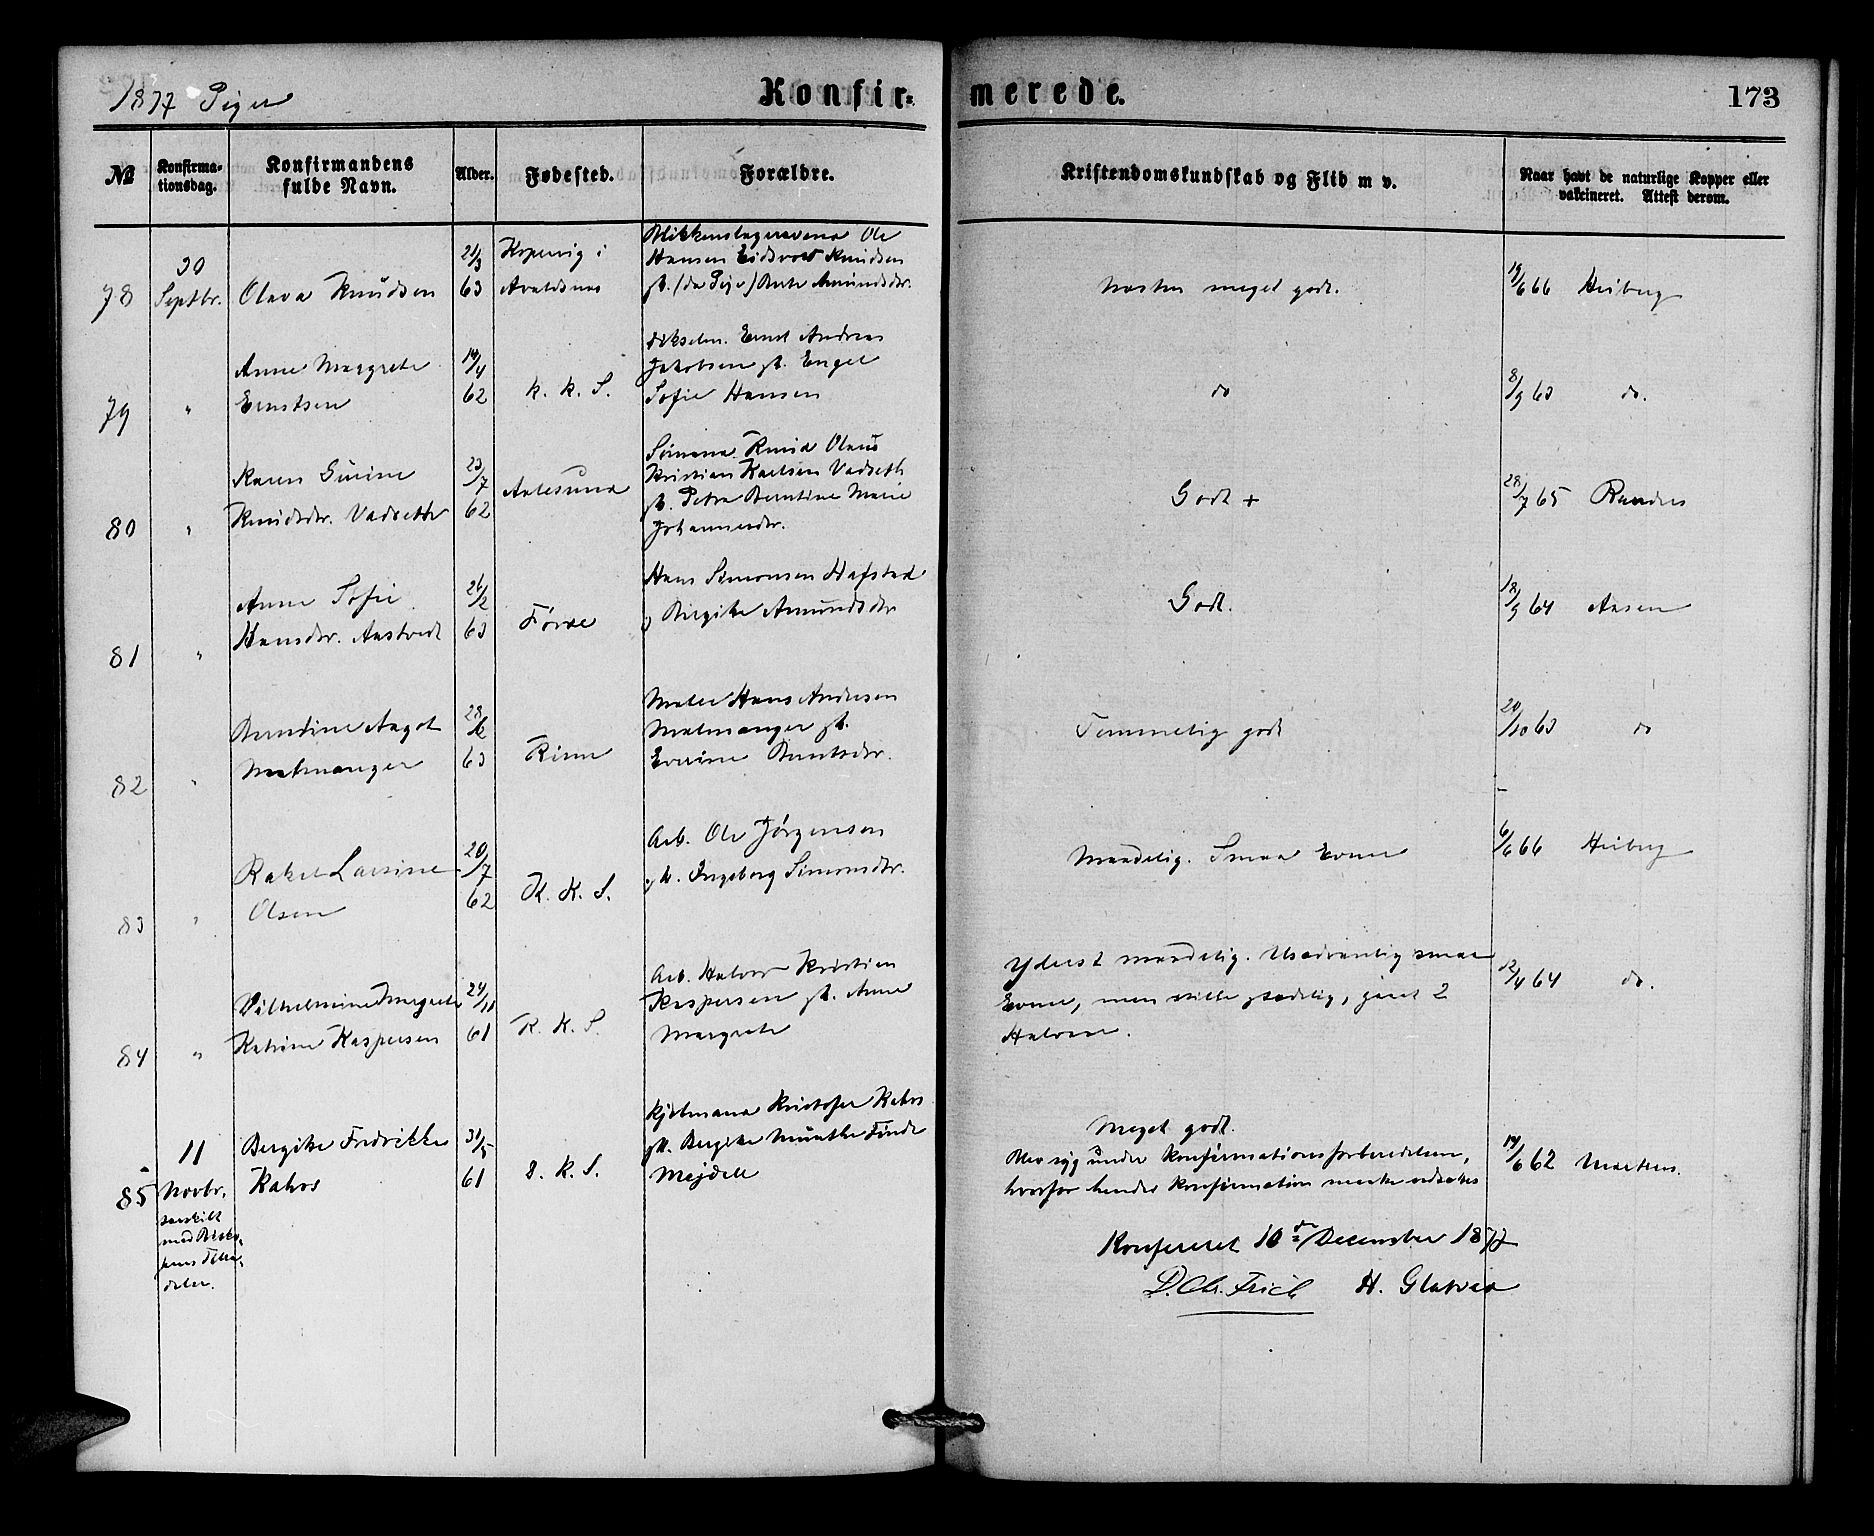 1877 Piger
Konfir- merede.
173
№
Konfirma-
tionsdag.
Konfirmandens
fulde Navn.
Alder.
Fødested.
Forældre.
Kristendomskundskab og Flid m v.
Naar havt de naturlige Kopper eller
vakcineret. Attest derom.
78
30
Septbr.
Olava Knudsen
21/3
63
Kopervig i
Avaldsnes
Ole
Hansen Eidsvold Knudsen
gk. (da Pige) Berte Amundsdtr.
Næsten meget godt.
19/6 66 Heiberg
79
"
Anne Margrete
Ernstsen
14/4
62
k. k. S.
Ernst Andreas
Jakobsen gk. Engel
Sofie Hansen
do
8/9 63 do.
80
"
Karen Gurine
Knudsdtr. Vadseth
23/7
62
Aalesund
Sømand Knud Olaus
Kristian Karlsen Vadseth
gk. Petra Berntine Marie
Johannesdtr.
Godt +
28/7 65 Randers
81
"
Anne Sofie
Hansdtr. Aastvedt
26/2
63
Førde
Hans Simonsen Hafstad
og Birgitte Amundsdtr
Godt.
18/9 64 Aasen
82
"
Berndine Aagot
Malmanger
28/6
63
Kinn
Maler Hans Andresen
Malmanger gk.
Berntsdtr.
Temmelig godt
20/10 63 do
83
"
Rakel Larsine
Olsen
20/7
62
K. K. S.
Arb. Ole Jørgensen
gk. Ingeborg Simonsdtr.
Maadelig. Smaa Evner
6/6 66 Heiberg
84
"
Vilhelmine Margrete
Katrine Kaspersen
24/11
61
K. K. S.
Arb. Halvor Kristian
Kaspersen gk. Anne
Margrete
Yderst maadelig. Usædvanlig smaa
Evner, men stille sædelig, gaaet 2
Halvaar.
12/4 64 do.
85
11
Novbr.
særskilt
med Bisko-
pens Tilla-
delse.
Bergitte Fredrikke
Kahrs
31/5
61
d. k. S.
Kjøbmand Kristofer Kahrs
gk. Bergitte Munthe Finde
Mejdell
Meget godt.
Blev syg under Konfirmationsforberedelsen,
hvorfor hendes Konfirmation maatte udsættes
14/6 62 Martens.
Konfereret 10de December 1877
D. Ch. Frich H. Glatved